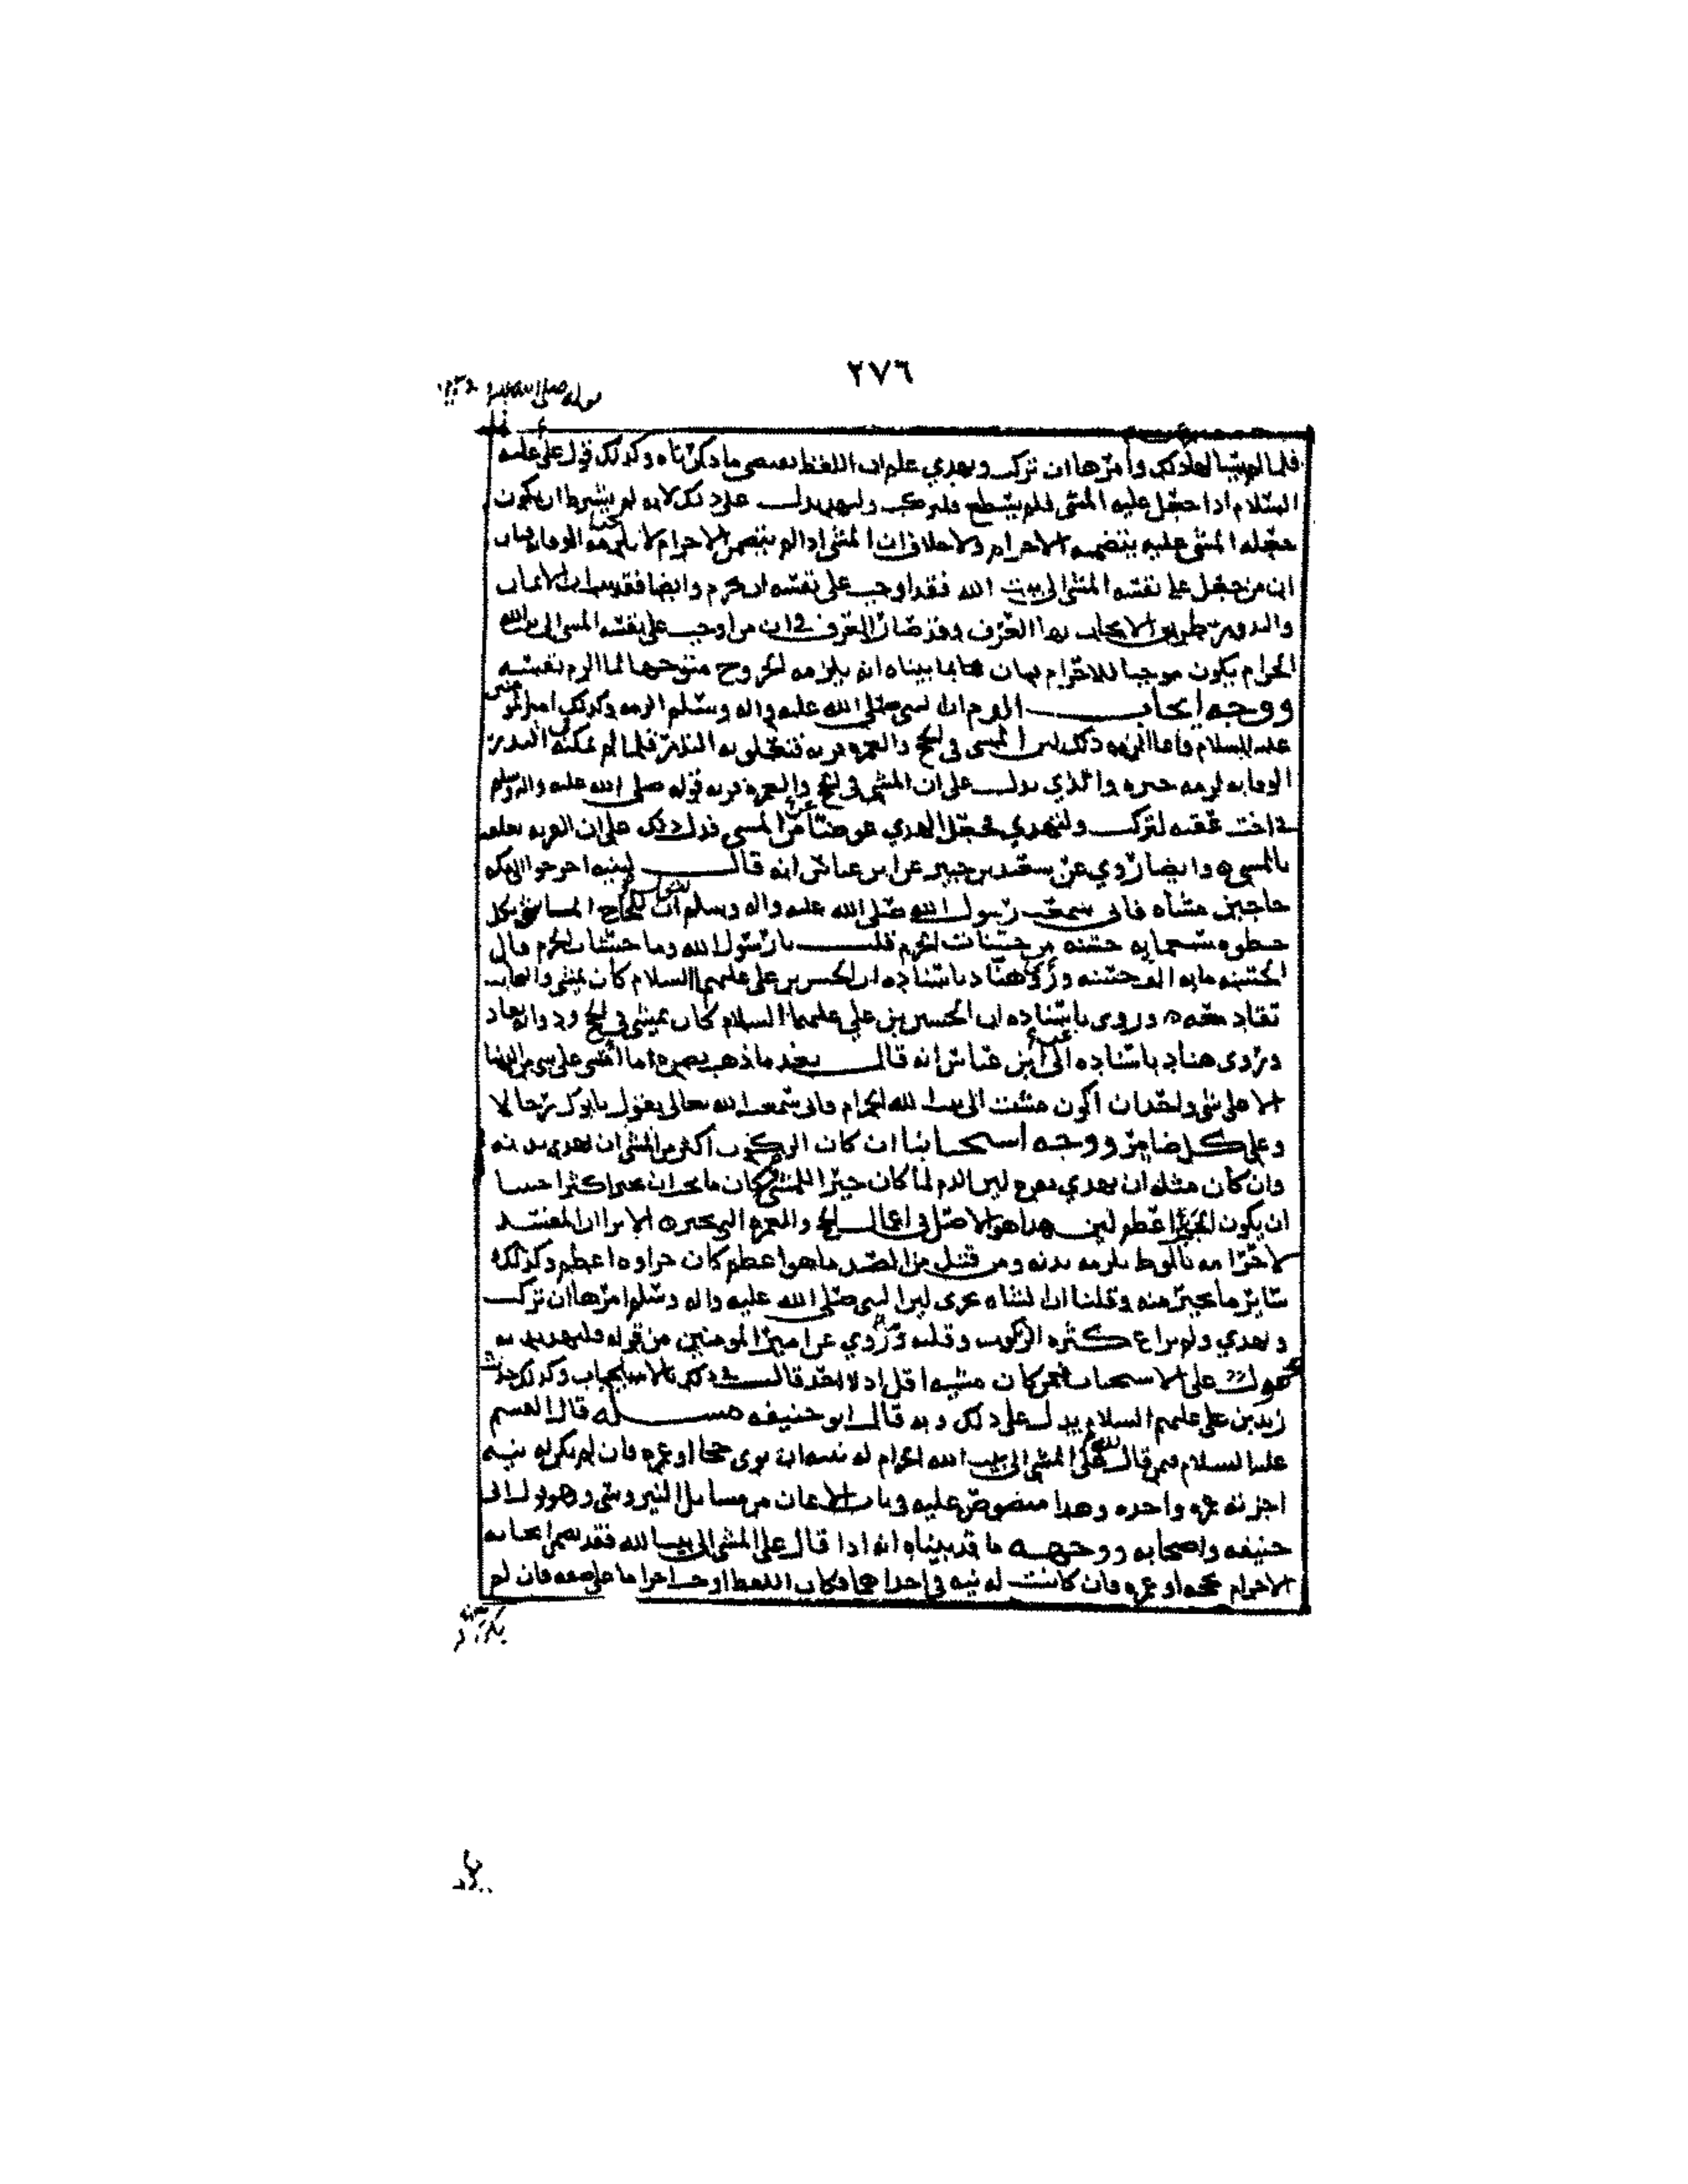 ٢٧٦
فلما لم يستثبتها ذلك وأمرها ان تركب وتهدي علم ان اللفظ يقتضي ما ذكرناه وكذلك قول علي عليه
السلام اذا جعل عليه المشي فلم يستطع فليركب وليهد يدل على ذلك لانه لم يشترط ان يكون
جعله المشي عليه بتضمنه الاحرام ولا خلاف ان المشي اذا لم يتضمن الاحرام لا يلزمه الوفا به فبان
ان من جعل على نفسه المشي الى بيت الله فقد اوجب على نفسه ان يحرم وايضا فقد بينا ان الايمان
والنذور طريق الايجاب بها العرف وقد صار العرف في ان من اوجب على نفسه المشي الى بيت الله
الحرام يكون موجبا للاحرام فبان بما بيناه انه يلزمه الخروج متوجها لما الزم نفسه
ووجه ايجاب الدم ان النبي صلى الله عليه واله وسلم الزمه وكذلك امير المومنين
عليه السلام وانما الزمه ذلك لان المشي في الحج والعمرة قربه فتعلق به النذر فلما لم يمكنه في النذر
الوفا به لزمه جبره والذي يدل على ان المشي في الحج والعمرة قربه قوله صلى الله عليه واله وسلم
في اخت عقبه لتركب ولتهدي فجعل الهدي عوضا من المشي فدل ذلك على ان القربه تعلقت
بالمشي وايضا روي عن سعيد بن جبير عن ابن عباس انه قال لبنيه اخرجوا الى مكه
حاجين مشاه فاني سمعت رسول الله صلى الله عليه واله وسلم يقول ان للحاج الماشي بكل
خطوه سبعمايه حسنه من حسنات الحرم قلت يا رسول الله وما حسنات الحرم قال
الحسنه مايه الف حسنه وروى هناد باسناده ان الحسن بن علي عليهما السلام كان يمشي والنجايب
تقاد معه وروى باسناده ان الحسين بن علي عليهما السلام كان يمشي في الحج ودوابه تقاد
وروى هناد باسناده الى ابن عباس انه قال بعد ما ذهب بصره ما آسى على شي من الدنيا
الا على شي واحد ان اكون مشيت الى بيت الله الحرام فاني سمعت الله تعالى يقول ياتوك رجالا
وعلى كل ضامر ووجه استحبابنا ان كان الركوب اكثر من المشي ان يهدي بدنه
وان كان مثله ان يهدي بقره لان الدم لما كان جبرا للمشي وكان ما يجبر ان يجبر اكثر احببنا
ان يكون الجبر اعظم لان هذا هو الاصل في اعمال الحج والعمرة المجبره الا ترا ان المفسد
لاحرامه بالوطي يلزمه بدنه ومن قتل من الصيد ما هو اعظم كان جزاوه اعظم وكذلك
ساير ما يجبر منه وقلنا ان الشاه تجزي لان النبي صلى الله عليه واله وسلم امرها ان تركب
وتهدي ولم يراع كثره الركوب وقلته وروي عن امير المومنين من قوله وليهد بدنه
محمول على الاستحباب فيمن كان مشيه اقل اذ لا احد قال في ذلك بالايجاب وكذلك حديث
زيد بن علي عليهم السلام يدل على ذلك وبه قال ابو حنيفه مسله قال القسم
عليه السلام فيمن قال لله علي المشي الى بيت الله الحرام له نيته ان نوى حجا او عمره فان لم يكن له نيه
اجزته عمره واحده وهذا منصوص عليه في باب الايمان من مسايل النيروسي وهو قول ابي
حنيفه واصحابه ووجهه ما قد بيناه انه اذا قال علي المشي الى بيت الله فقد تضمن ايجابه
الاحرام بحجه او عمره فان كانت له نيه في احداهما وكان اللفظ اوجب احراما على صفه فان لم